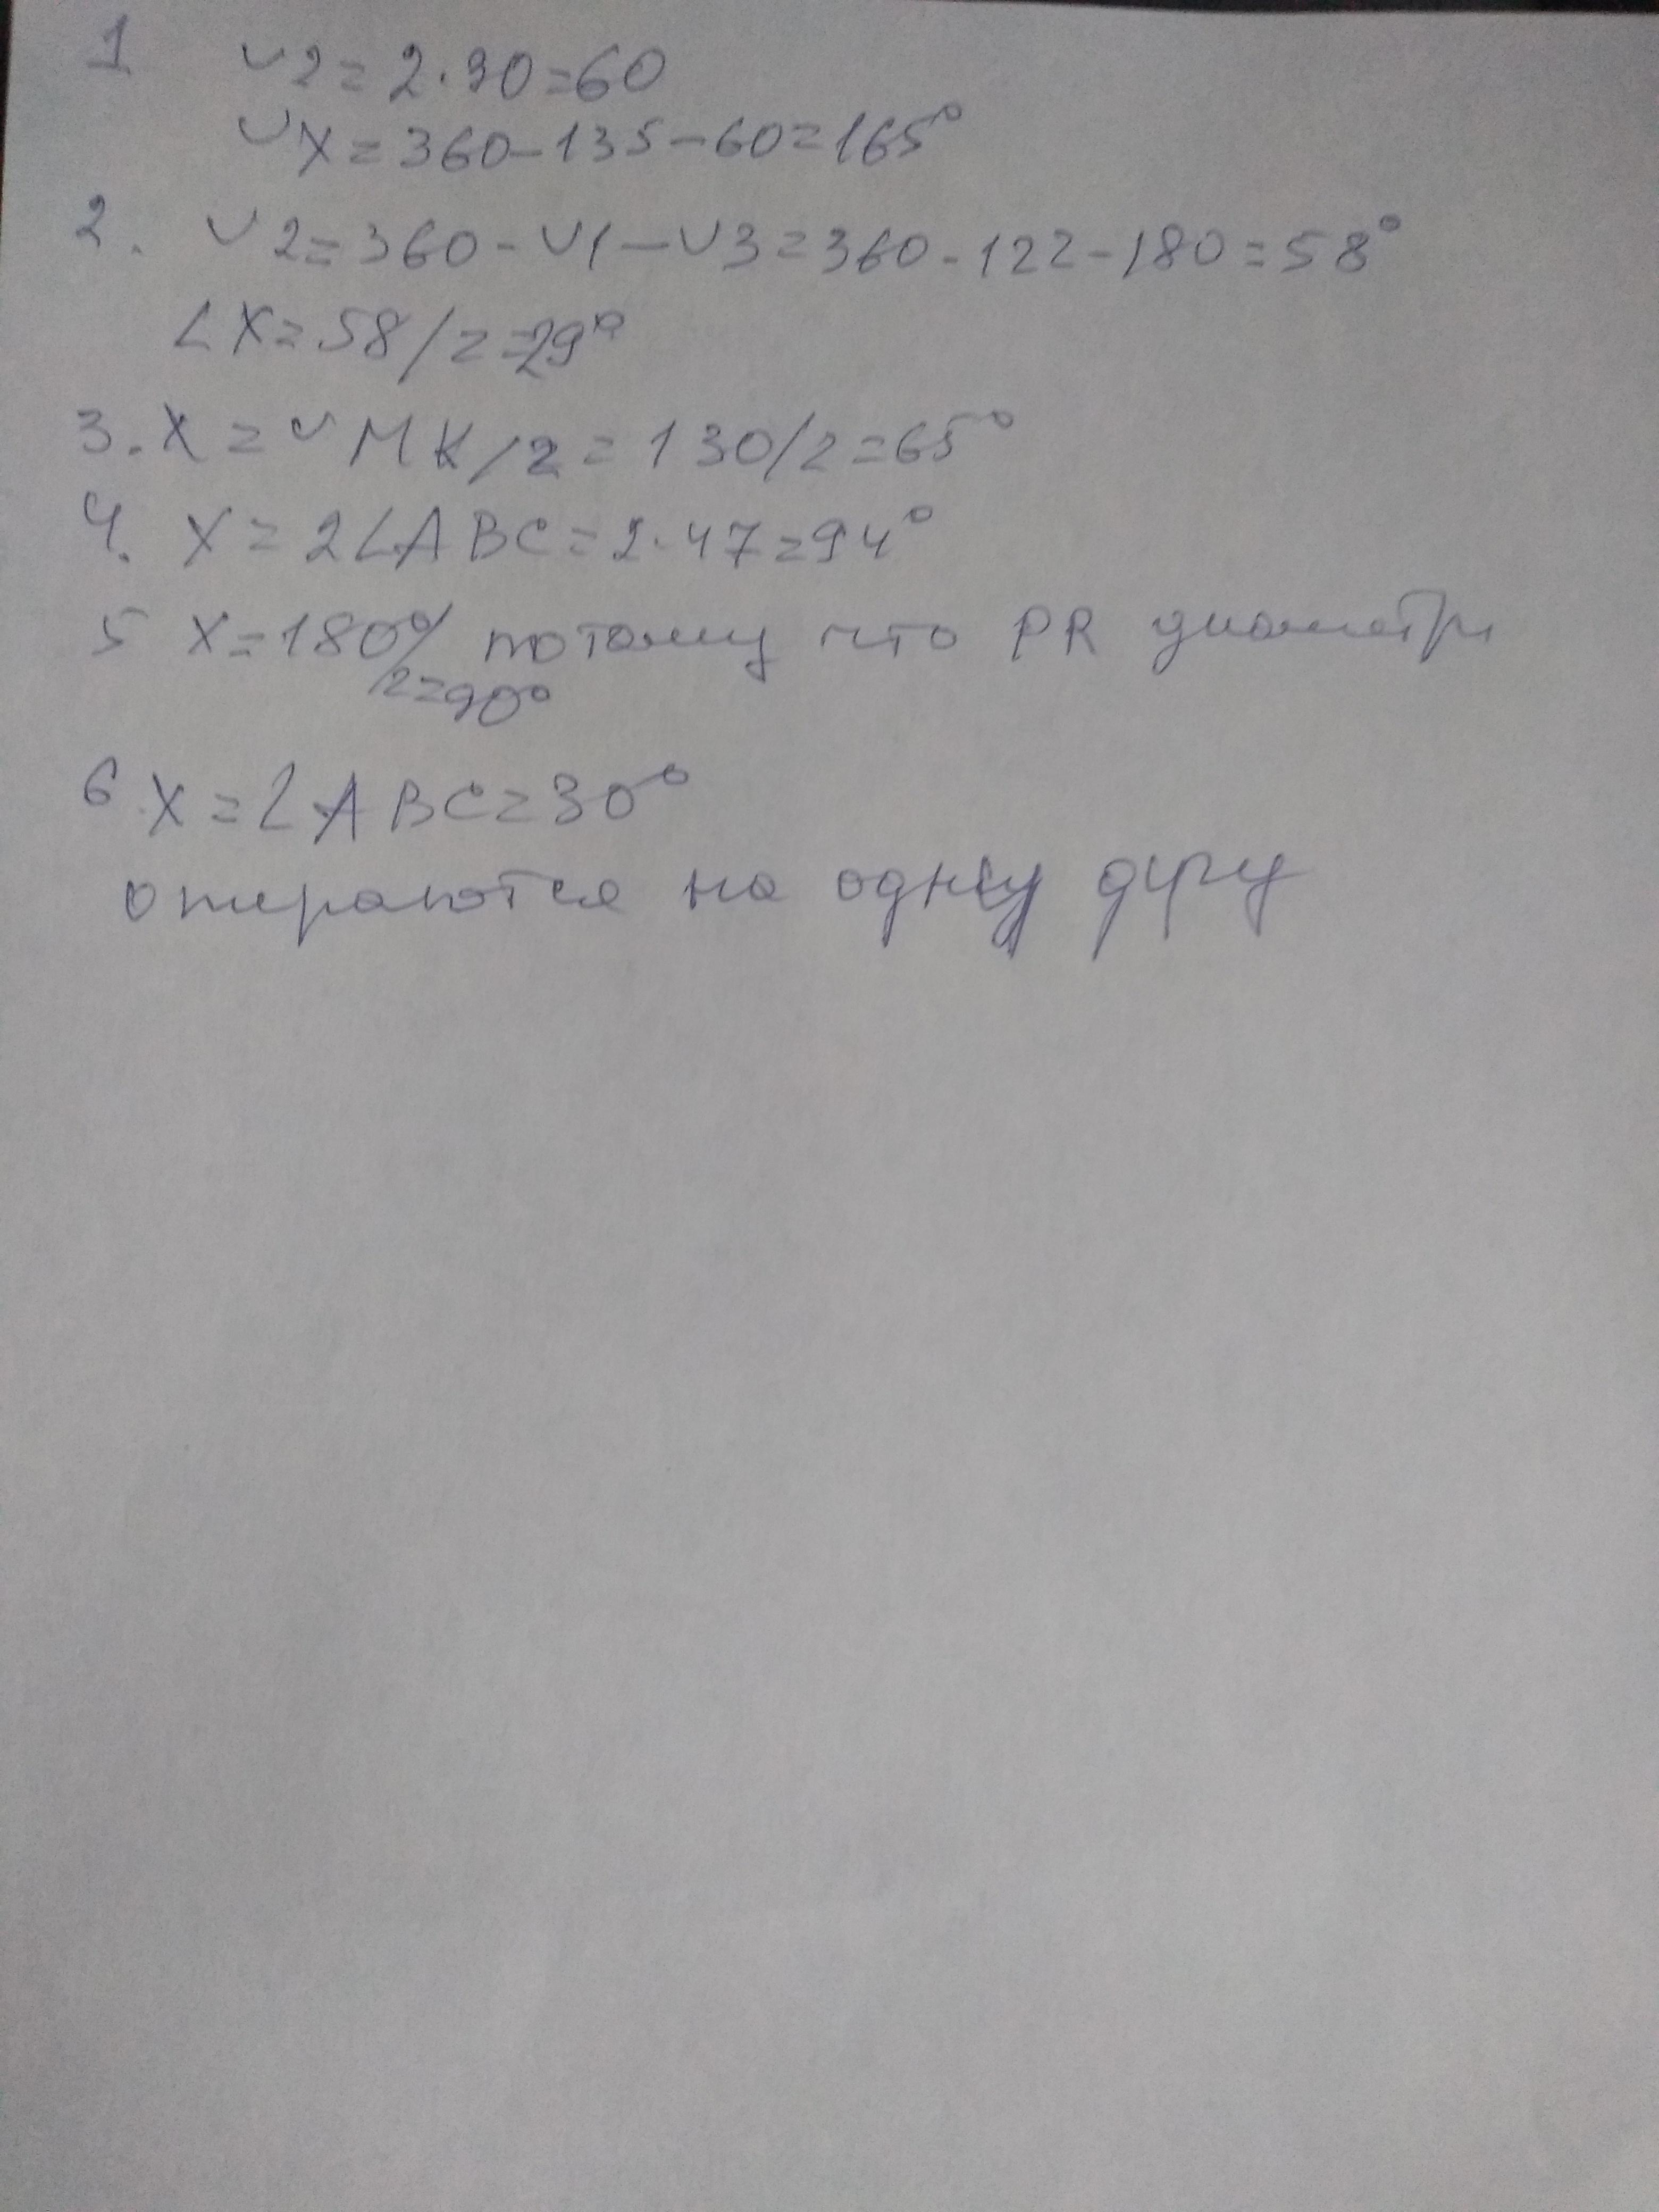 1 ◡2=2·30=60
◡X=360-135-60=165°
2. ◡2=360-◡1-◡3=360-122-180=58°
∠X=58/2=29°
3. X=◡MK/2=130/2=65°
4. X=2∠ABC=2·47=94°
5 X=180°/2=90° потому что PR диаметр
6. X=∠ABC=30°
опираются на одну дугу